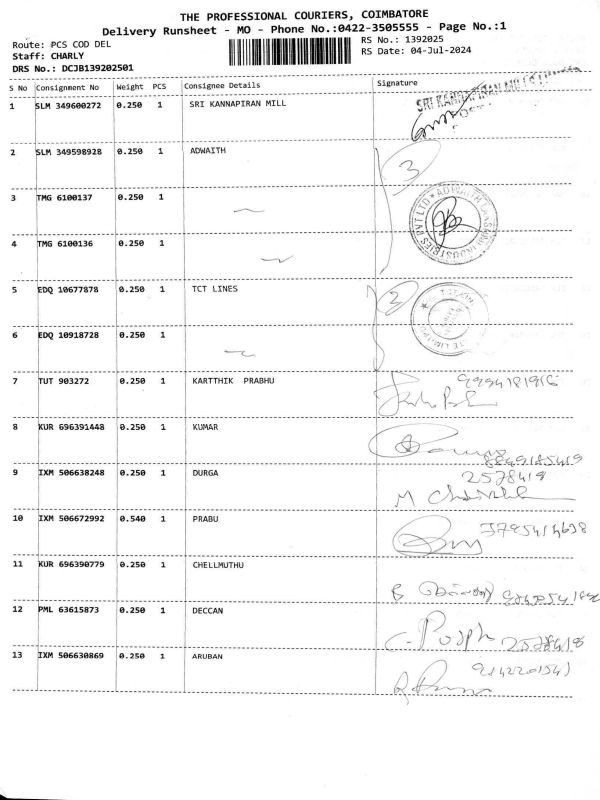 THE PROFESSIONAL COURIERS, COIMBATORE
Delivery Runsheet - MO - Phone No.:0422-3505555 - Page No.:1
Route: PCS COD DEL
RS No.: 1392025
Staff: CHARLY
RS Date: 04-Jul-2024
DRS No.: DCJB139202501
S No Consignment No Weight PCS Consignee Details Signature
1 SLM 349600272 0.250 1 SRI KANNAPIRAN MILL
SRI KANNAPIRAN MILLS
2 SLM 349598928 0.250 1 ADWAITH 3
3 TMG 6100137 0.250 1
4 TMG 6100136 0.250 1
5 EDQ 10677878 0.250 1 TCT LINES 2
6 EDQ 10918728 0.250 1
7 TUT 903272 0.250 1 KARTTHIK PRABHU
8 KUR 696391448 0.250 1 KUMAR
9 IXM 506638248 0.250 1 DURGA 2578419
10 IXM 506672992 0.540 1 PRABU
11 KUR 696390779 0.250 1 CHELLMUTHU
12 PML 63615873 0.250 1 DECCAN
13 IXM 506630869 0.250 1 ARUBAN